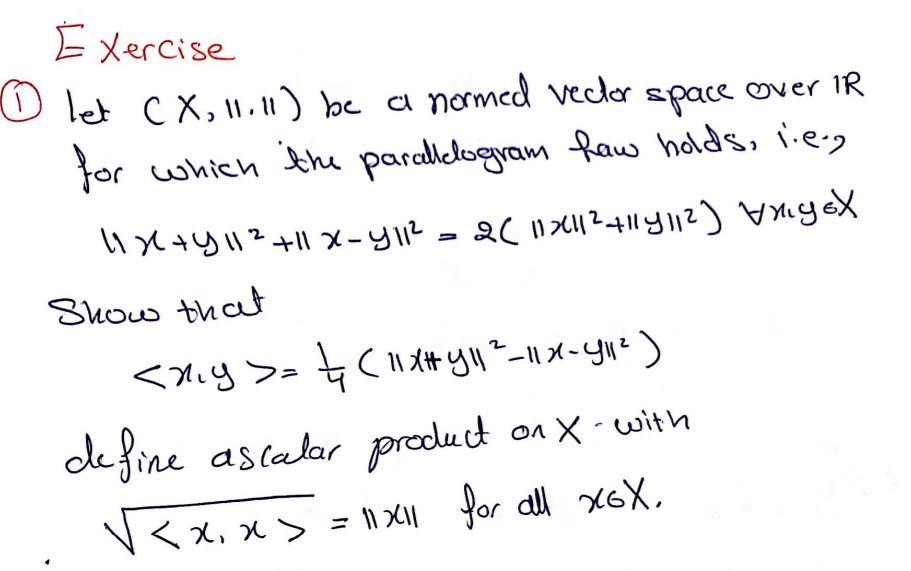 Exercise
① let (X, ||.||) be a normed vector space over IR
for which the parallelogram law holds, i.e.,
||x+y||² + ||x-y||² = 2( ||x||²+||y||²) ∀x,y∈X
Show that
<x,y> = 1/4 ( ||x+y||² - ||x-y||² )
define a scalar product on X - with
√<x, x> = ||x|| for all x∈X.